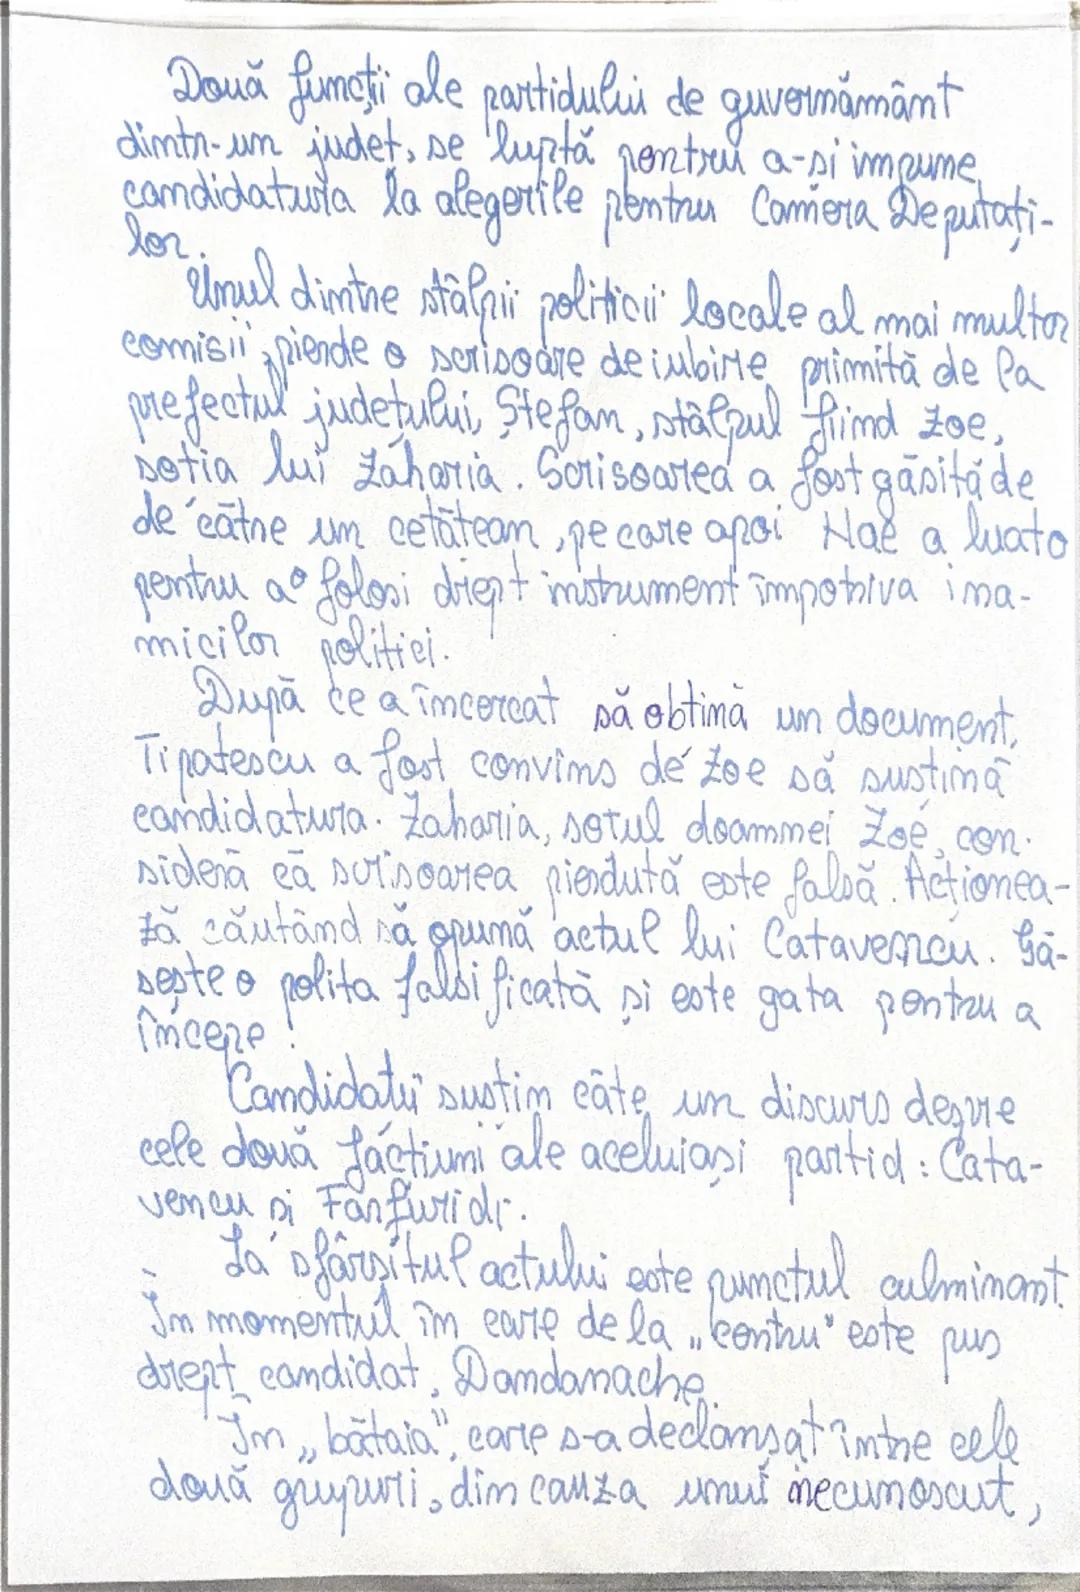 Două funcții ale partidului de guvernământ
dintr-un județ, se luptă pentru a-si impune
candidatura la alegerile pentru Camera Deputați-
lor.
Unul dintre stâlpii politicii locale al mai multor
comisii, pierde o scrisoare de iubire primită de la
prefectul județului, Ștefan, stâlpul fiind Zoe,
soția lui Zaharia. Scrisoarea a fost găsită de
de către un cetățean, pe care apoi Nae a luato
pentru a o folosi drept instrument împotriva ina-
micilor politici.
După ce a încercat să obțină un document,
Tipatescu a fost convins de Zoe să susțină
candidatura. Zaharia, soțul doamnei Zoe, con-
sideră că scrisoarea pierdută este falsă. Acționea-
ză căutând să opună actul lui Catavencu. Gă-
sește o polita falsificată si este gata pentru a
începe!
Candidatii susțin câte un discurs despre
cele două facțiuni ale aceluiași partid: Cata-
vencu si Fanfuridi.
La sfârșitul actului este punctul culminant.
În momentul în care de la „centru" este pus
drept candidat, Dandanache
În „bătaia", care s-a declanșat între cele
două grupuri, din cauza unui necunoscut,